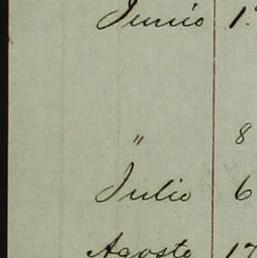 Junio 1º
" 8
Julio 6
Agosto 17